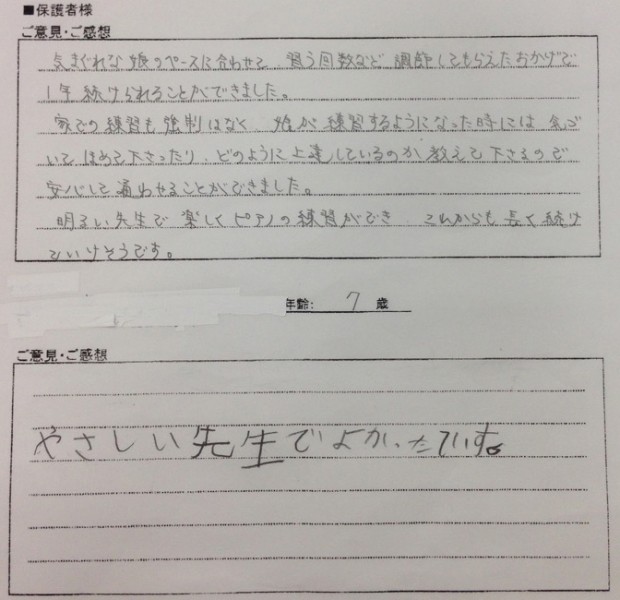 ■保護者様
ご意見・ご感想
気まぐれな娘のペースに合わせて、習う回数など調節してもらえたおかげで
1年続けられることができました。
家での練習も強制はなく、娘が練習するようになった時には気づ
いてほめて下さったり、どのように上達しているのか教えて下さるので
安心して通わせることができました。
明るい先生で楽しくピアノの練習ができ、これからも長く続け
ていけそうです。
年齢: 7 歳
ご意見・ご感想
やさしい先生でよかったです。